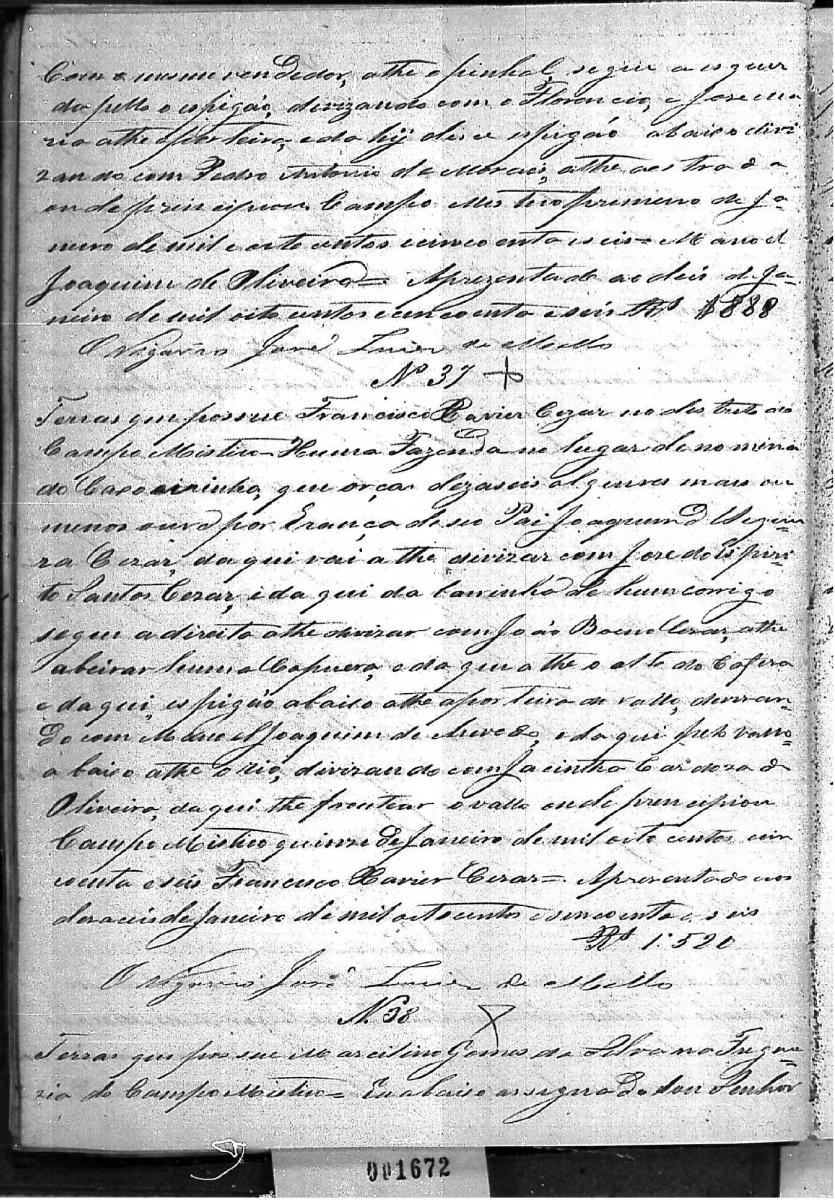 Com o mesmo vendedor, athe o pinhal, segue a esquer
da pello o espigão, divizando com o Florencio, e Jose ma
ria athe aporteira, e da hÿ desce espigão abaixo divi
zando com Pedro Antonio de Morais, athe a estrada
onde principiou. Campo Mistico primeiro de Ja-
neiro de mil e oito centos cincoenta e seis = Manoel
Joaquim de Oliveira = Aprezentado aos deis de Ja-
neiro de mil oito centos e cincoenta e seis Rs 1$888
O Vigario José Luiz de Mello
Nº 37
Terras que possue Francisco Xavier Cezar no destrito do
Campo Mistico = Huma Fazenda no lugar denomina
do Caxoeirinha, que orça dezaseis alqueires mais ou
menos ouve por Erança de seo Pai Joaquim de Sequei
ra Cezar, daqui vai athe divizar com Jose do Espiri-
to Santos Cezar, e da qui da barrinha de hum corrigo
segue a direita athe divizar com João Bueno Cezar, athe
abeirar huma Capuera, e da qui athe o alto do Cafezal
e da qui, espigão abaixo athe a porteira de vallo, devizan-
do com Manoel Joaquim de Azevedo, e da qui pelo vallo
abaixo athe o rio, divizando com Jacintho Cardozo de
Oliveira, da qui the frontear o vallo onde prencipiou
Campo Mistico quinze de Janeiro de mil oito centos cin
coenta e seis Francisco Xavier Cezar = Aprezentado aos
dezaceis de Janeiro de mil oito centos e sencoenta e seis
Rs 1:520
O Vigario José Luiz de Mello
N. 38
Terras que possue Marcilino Gomes da Silva na Fregue-
zia do Campo Mistico = Eu abaixo assignado sou Senhor
001672